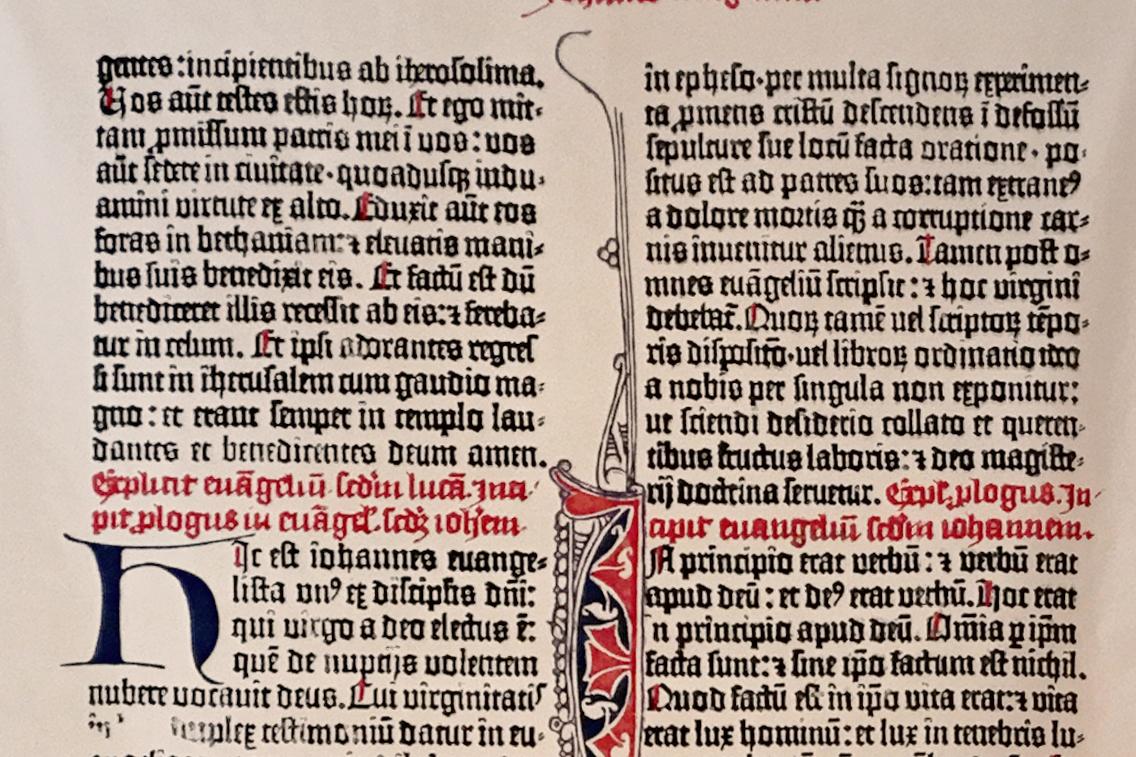 gentes : incipientibus ab iherosolima.
Vos aūt testes estis hoꝝ. Et ego mit⸗
tam ꝓmissum patris mei ī vos : vos
aūt sedete in civitate · quoadusqꝫ indu⸗
amini virtute ex alto. Eduxit aūt eos
foras in bethaniam : ⁊ elevatis mani⸗
bus suis benedixit eis. Et factū est dū
benediceret illis recessit ab eis : ⁊ fereba⸗
tur in celum. Et ipsi adorantes regres
si sunt in iherusalem cum gaudio ma⸗
gno : et erant semper in templo lau⸗
dantes et benedicentes deum amen.
Explicit euāgeliū scd'm lucā. Inci⸗
pit ꝓlogus in euāgel'. scd'ꝫ ioh'em
Hic est iohannes euange⸗
lista unꝰ ex discipl'is dn̄i :
qui virgo a deo electus ē :
quē de nuptijs volentem
nubere vocavit deus. Cui virginitatis
in testimoniū datur in eu⸗
in epheso · per multa signoꝝ experimen⸗
ta ꝓmens cristū descendens ī defossū
sepulture sue locū facta oratione · po⸗
situs est ad patres suos : tam extraneꝰ
a dolore mortis q̄ꝫ a corruptione car⸗
nis invenitur alienus. Tamen post o⸗
mnes euāgeliū scripsit : ⁊ hoc virgini
debebat'. Quoꝝ tamē vel scriptoꝝ tēpo⸗
ris dispositō · vel libroꝝ ordinatio ideo
a nobis per singula non exponitur :
ut sciendi desiderio collato et queren⸗
tibus fructus laboris : ⁊ deo magiste⸗
rij doctrina servetur. Expl' ꝓlogus. In⸗
cipit euangeliū scd'm iohannem.
In principio erat verbū : ⁊ verbū erat
apud deū : et deꝰ erat verbū. Hoc erat
in principio apud deū. Om̄ia ꝑ ip̄m
facta sunt : ⁊ sine ip̄o factum est nichil.
Quod factū est in ip̄o vita erat : ⁊ vita
erat lux hominū : et lux in tenebris lu⸗